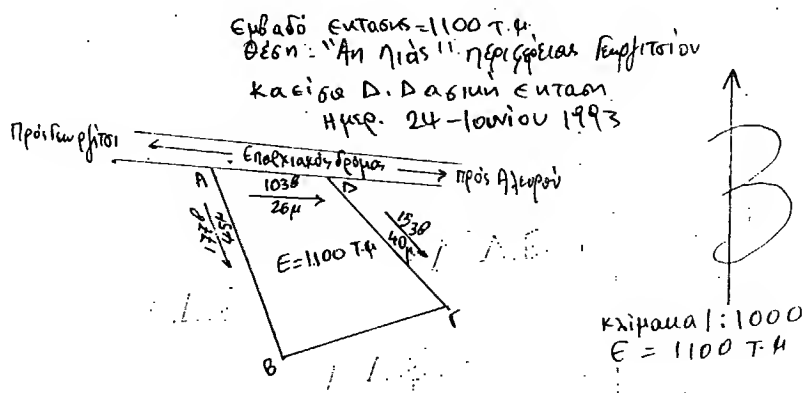 Εμβαδό εκτασης = 1100 τ.μ.
θέση: "Αη Λιάς" περιφέρειας Γεωργιτσίου
Δ. Δασική εκταση
Ημερ. 24 - Ιουνίου 1993
Πρός Γεωργίτσι
Επαρχιακός δρόμος
πρός Αλευρού
Α
103θ
26μ
Δ
153θ
40μ
45μ
Ε = 1100 τ.μ
Γ
Β
Β
κλίμακα 1:1000
Ε = 1100 τ.μ